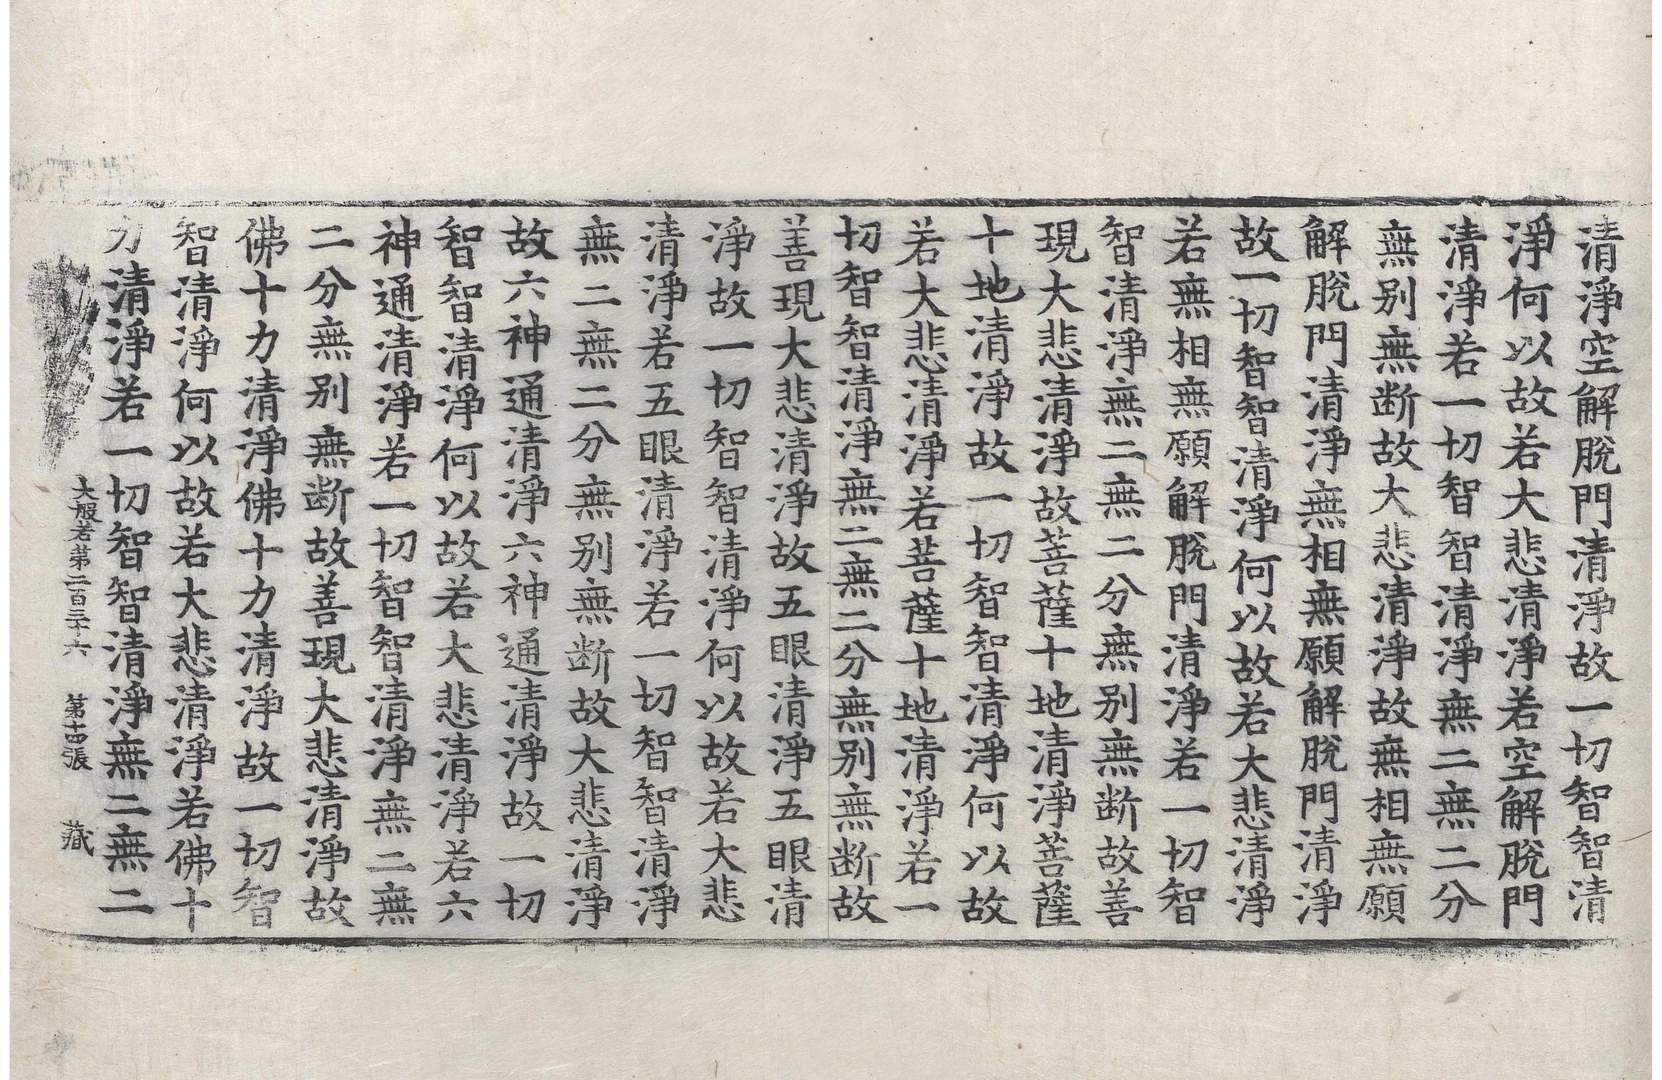 清淨空解脫門清淨故一切智智清
淨何以故若大悲清淨若空解脫門
清淨若一切智智清淨無二無二分
無別無断故大悲清淨故無相無願
解脫門清淨無相無願解脫門清淨
故一切智智清淨何以故若大悲清淨
若無相無願解脫門清淨若一切智
智清淨無二無二分無別無断故善
現大悲清淨故菩薩十地清淨菩薩
十地清淨故一切智智清淨何以故
若大悲清淨若菩薩十地清淨若一
切智智清淨無二無二分無別無断故
善現大悲清淨故五眼清淨五眼清
淨故一切智智清淨何以故若大悲
清淨若五眼清淨若一切智智清淨
無二無二分無別無断故大悲清淨
故六神通清淨六神通清淨故一切
智智清淨何以故若大悲清淨若六
神通清淨若一切智智清淨無二無
二分無別無断故善現大悲清淨故
佛十力清淨佛十力清淨故一切智
智清淨何以故若大悲清淨若佛十
力清淨若一切智智清淨無二無二
大般若第二百三十六 第十四張 藏